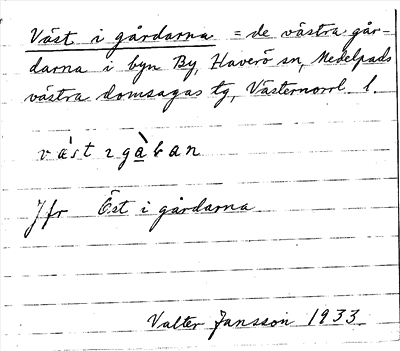 Väst i gårdarna = de västra går-
darna i byn By, Haverö sn, Medelpads
västra domsagas tg, Västernorrl. l.
Jfr Öst i gårdarna
Valter Jansson 1933